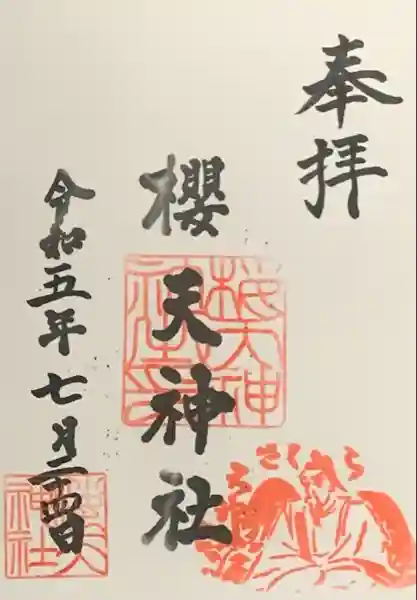 奉拝
櫻天神社
令和五年七月二十四日
さくら